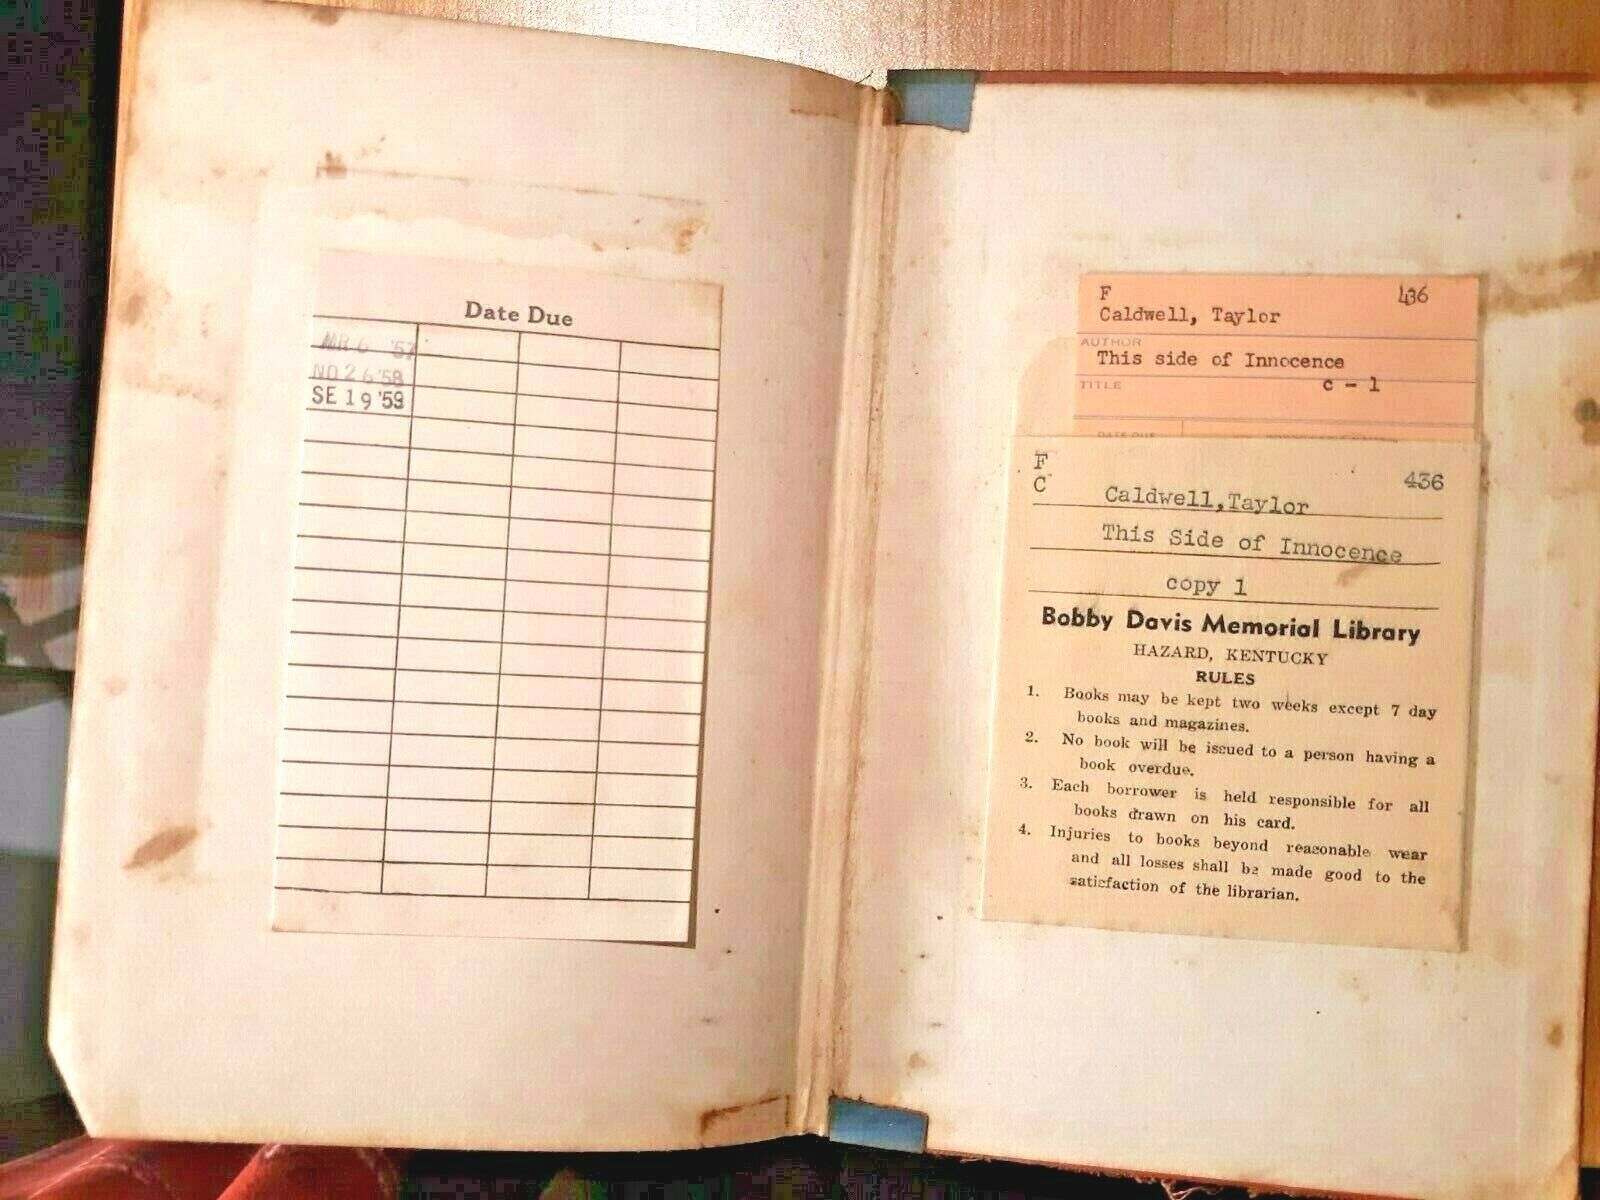 Date Due
MR 6 '57
NO 26 '58
SE 19 '59
F 436
Caldwell, Taylor
AUTHOR
This side of Innocence
TITLE c - 1
DATE DUE
F 436
C
Caldwell,Taylor
This Side of Innocence
copy 1
Bobby Davis Memorial Library
HAZARD, KENTUCKY
RULES
1. Books may be kept two weeks except 7 day
books and magazines.
2. No book will be issued to a person having a
book overdue.
3. Each borrower is held responsible for all
books drawn on his card.
4. Injuries to books beyond reasonable wear
and all losses shall be made good to the
satisfaction of the librarian.